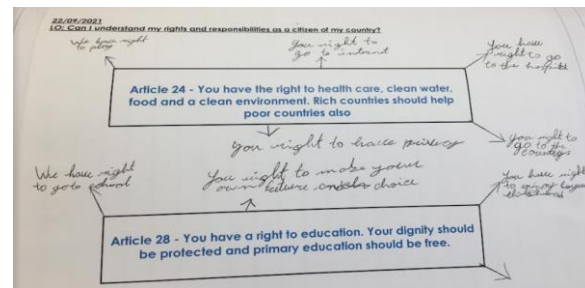 22/09/2021
LO: Can I understand my rights and responsibilities as a citizen of my country?
We have right
to play
You right to
go to internet
You have
right to go
to the hospital
Article 24 - You have the right to health care, clean water,
food and a clean environment. Rich countries should help
poor countries also
You right to have privacy
You right to
go to the
We have right
to go to school
You right to make your
own future choice
You have right
to enjoy
Article 28 - You have a right to education. Your dignity should
be protected and primary education should be free.